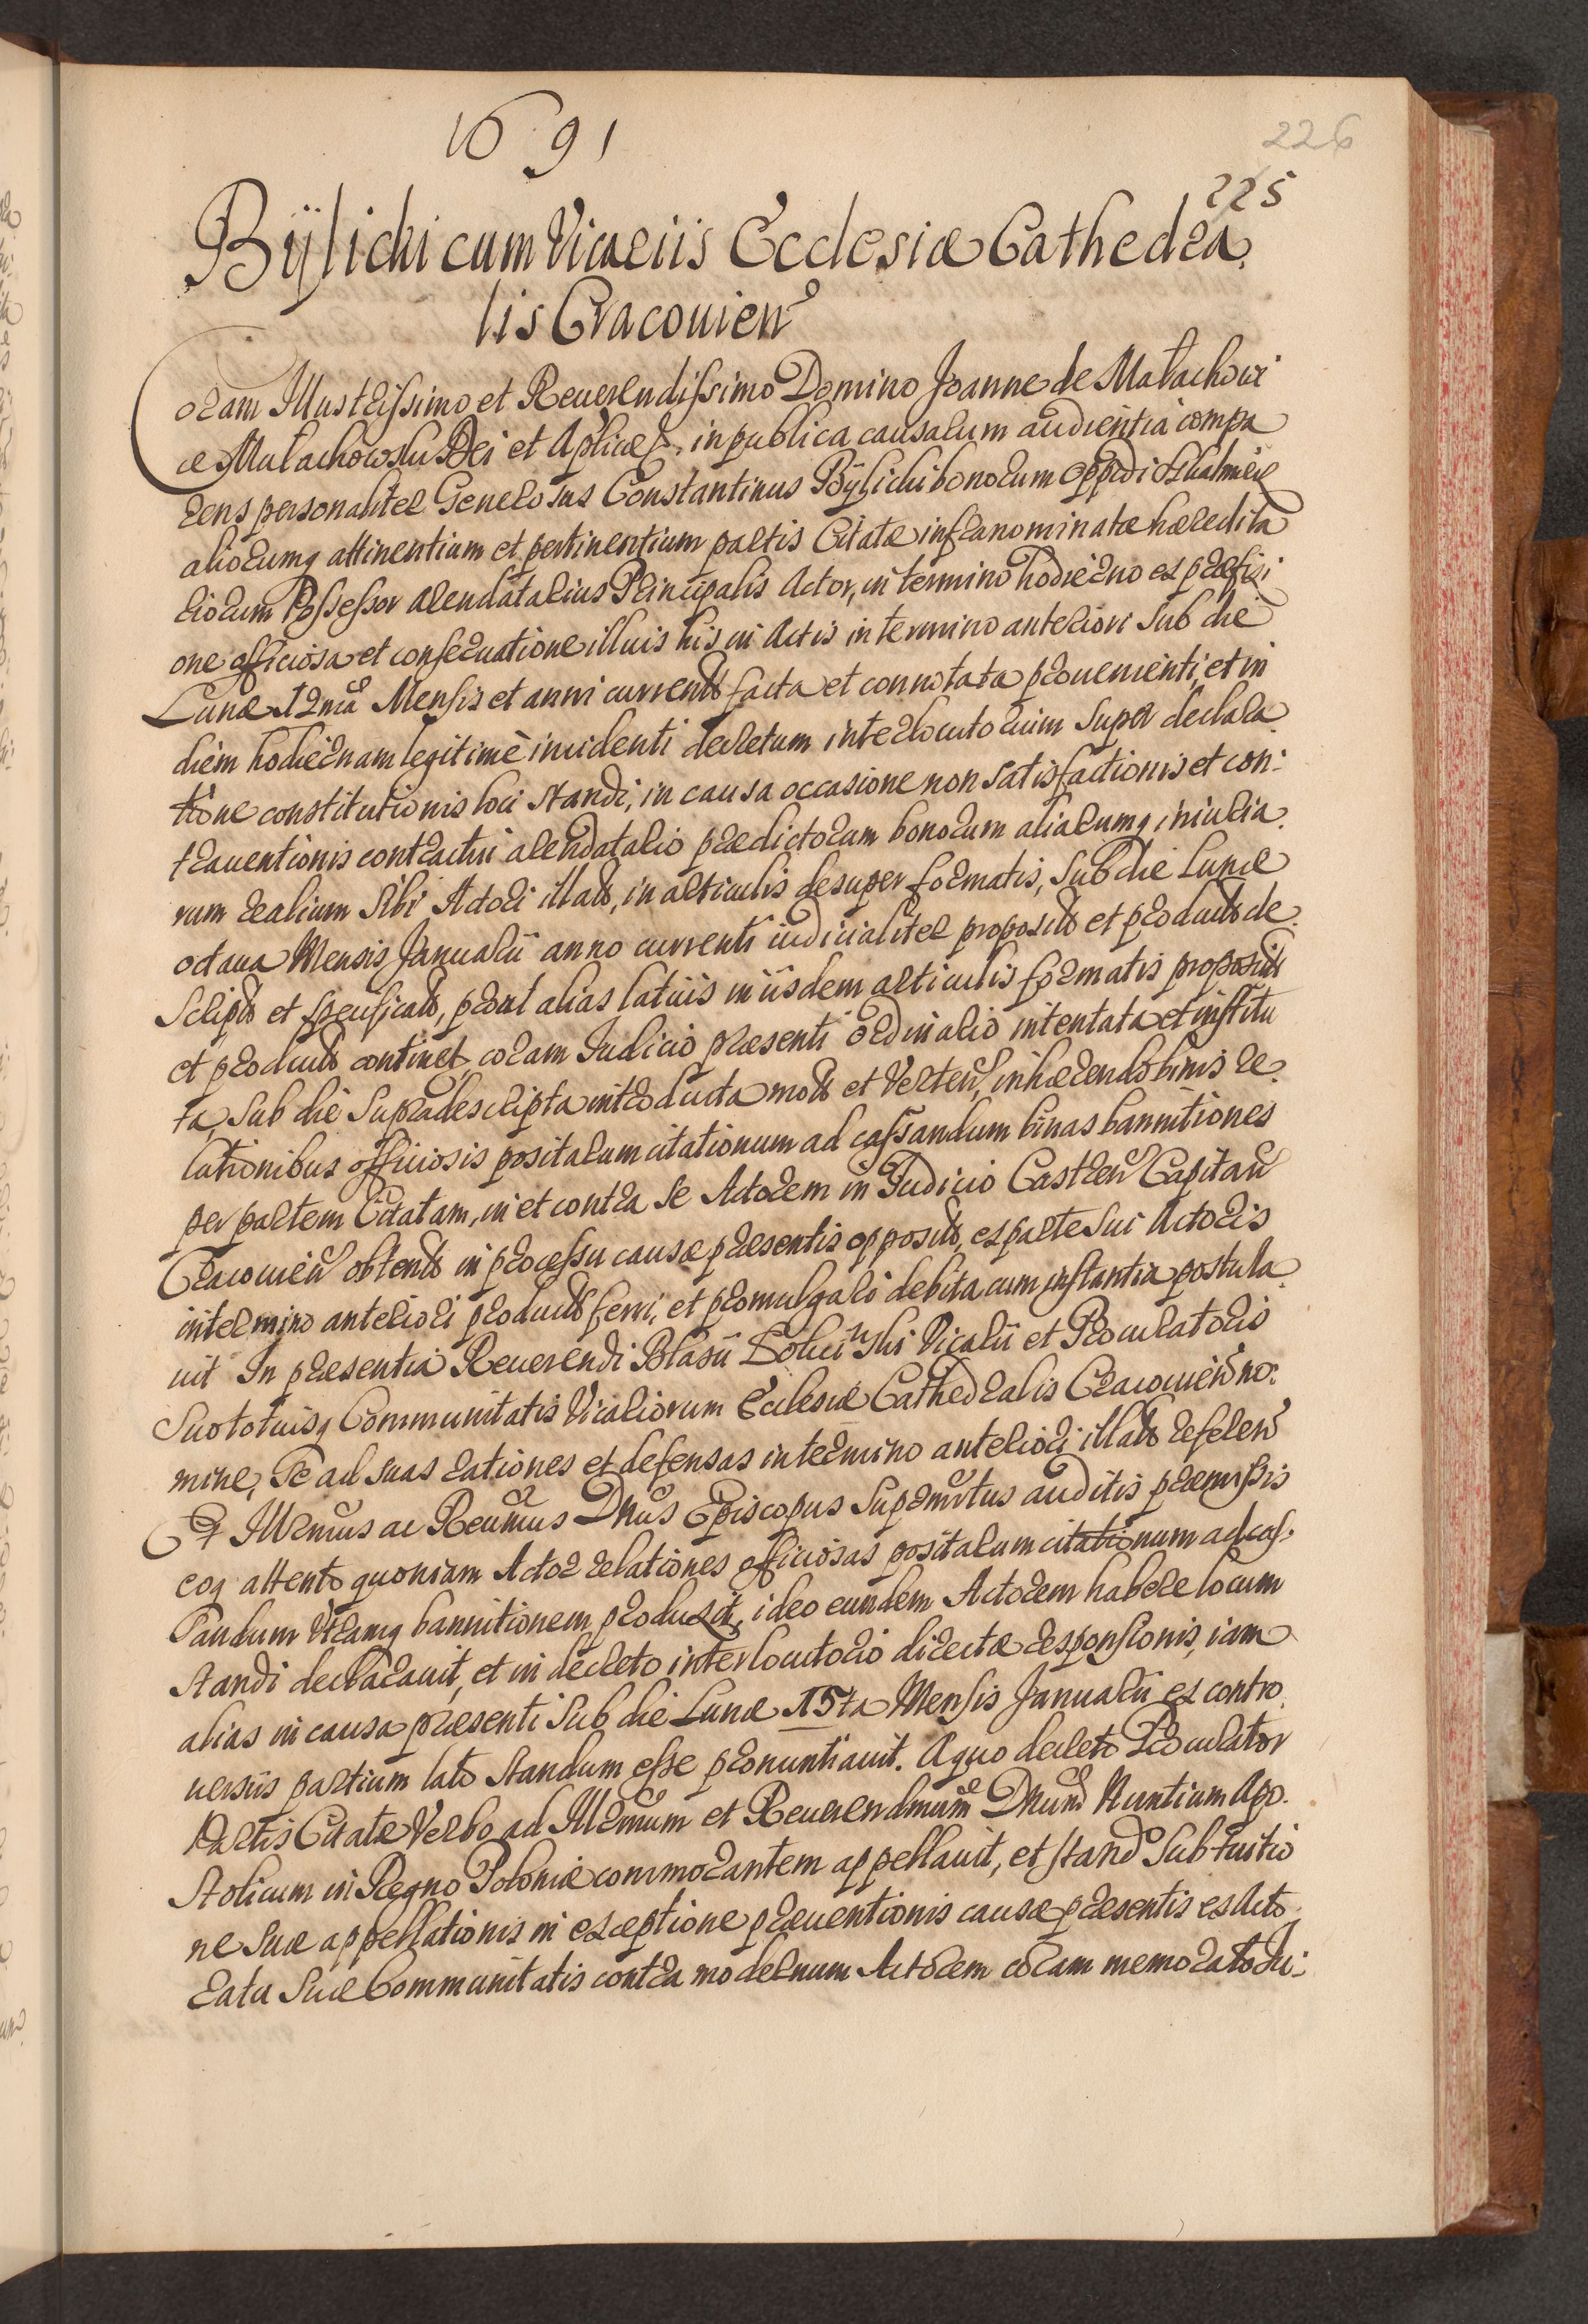 1691
226
225
Bÿlicki cum Vicariis Ecclesiæ Cathedra
lis Cracouien
Coram Illustrissimo et Reuerendissimo Domino Joanne de Małachowi
ce Małachowski Dei et Aplicæ &. in publica causarum audientia compa
rens personaliter Generosus Constantinus Bÿlicki bonorum oppidi Skalmierz
aliorumq attinentium et pertinentium partis Citatæ infranominatæ hæredita
riorum Possessor arendatarius Principalis Actor, in termino hodierno ex præfixi
one officiosa et conseruatione illius his in Actis in termino anteriori sub die
Lunæ 12ma Mensis et anni currentis facta et connotata prouenienti, et in
diem hodiernam legitimè incidenti decretum interlocutorium super declara
tione constitutionis loci standi, in causa occasione non satisfactionis et con:
trauentionis contractui arendatario prædictorum bonorum aliarumq iniuria
rum realium sibi Actori illatis, in articulis desuper formatis, sub die Lunæ
octaua Mensis Januarii anno currenti iudicialiter propositis et productis de
scriptis et specificatis, prout alias latius in iisdem articulis formatis propositis
et productis continet, coram Judicio præsenti ordinario intentata et institu
ta, sub die supradescripta introducta motis et verten, inhærendo binis re
lationibus officiosis positarum citationum ad cassandum binas bannitiones
per partem Citatam, in et contra se Actorem in Judicio Castren Capitan
Cracouien obtentis in processu causæ præsentis oppositis, ex parte sui Actoris
in termino anteriori productis ferri, et promulgari debita cum instantia postula
uit In præsentia Reuerendi Blasii Vicarii et Procuratoris
Suo totiusq Communitatis Vicariorum Ecclesiæ Cathedralis Cracouien no:
mine, se ad suas rationes et defensas in termino anteriori illatis referen
Et Illrmus ac Reumus Dnus Episcopus supranotus auditis præmissis
eoq attento quoniam Actor relationes officiosas positarum citationum ad cas
sandum utramq bannitionem produxit, ideo eundem Actorem habere locum
standi declarauit, et in decreto interlocutorio directæ responsionis, iam
alias in causa præsenti sub die Lunæ 15ta Mensis Januarii ex contro
uersiis partium lato standum esse pronuntiauit. A quo decreto Procurator
Partis Citatæ Verbo ad Illrmum et Reuerendmum Dnum Nuntium Apo
stolicum in Regno Poloniæ commorantem appellauit, et stando sub tuitio
ne suæ appellationis in exceptione præuentionis causæ præsentis ex Acto
ratu suæ Communitatis contra modernum Actorem coram memorato Iu: